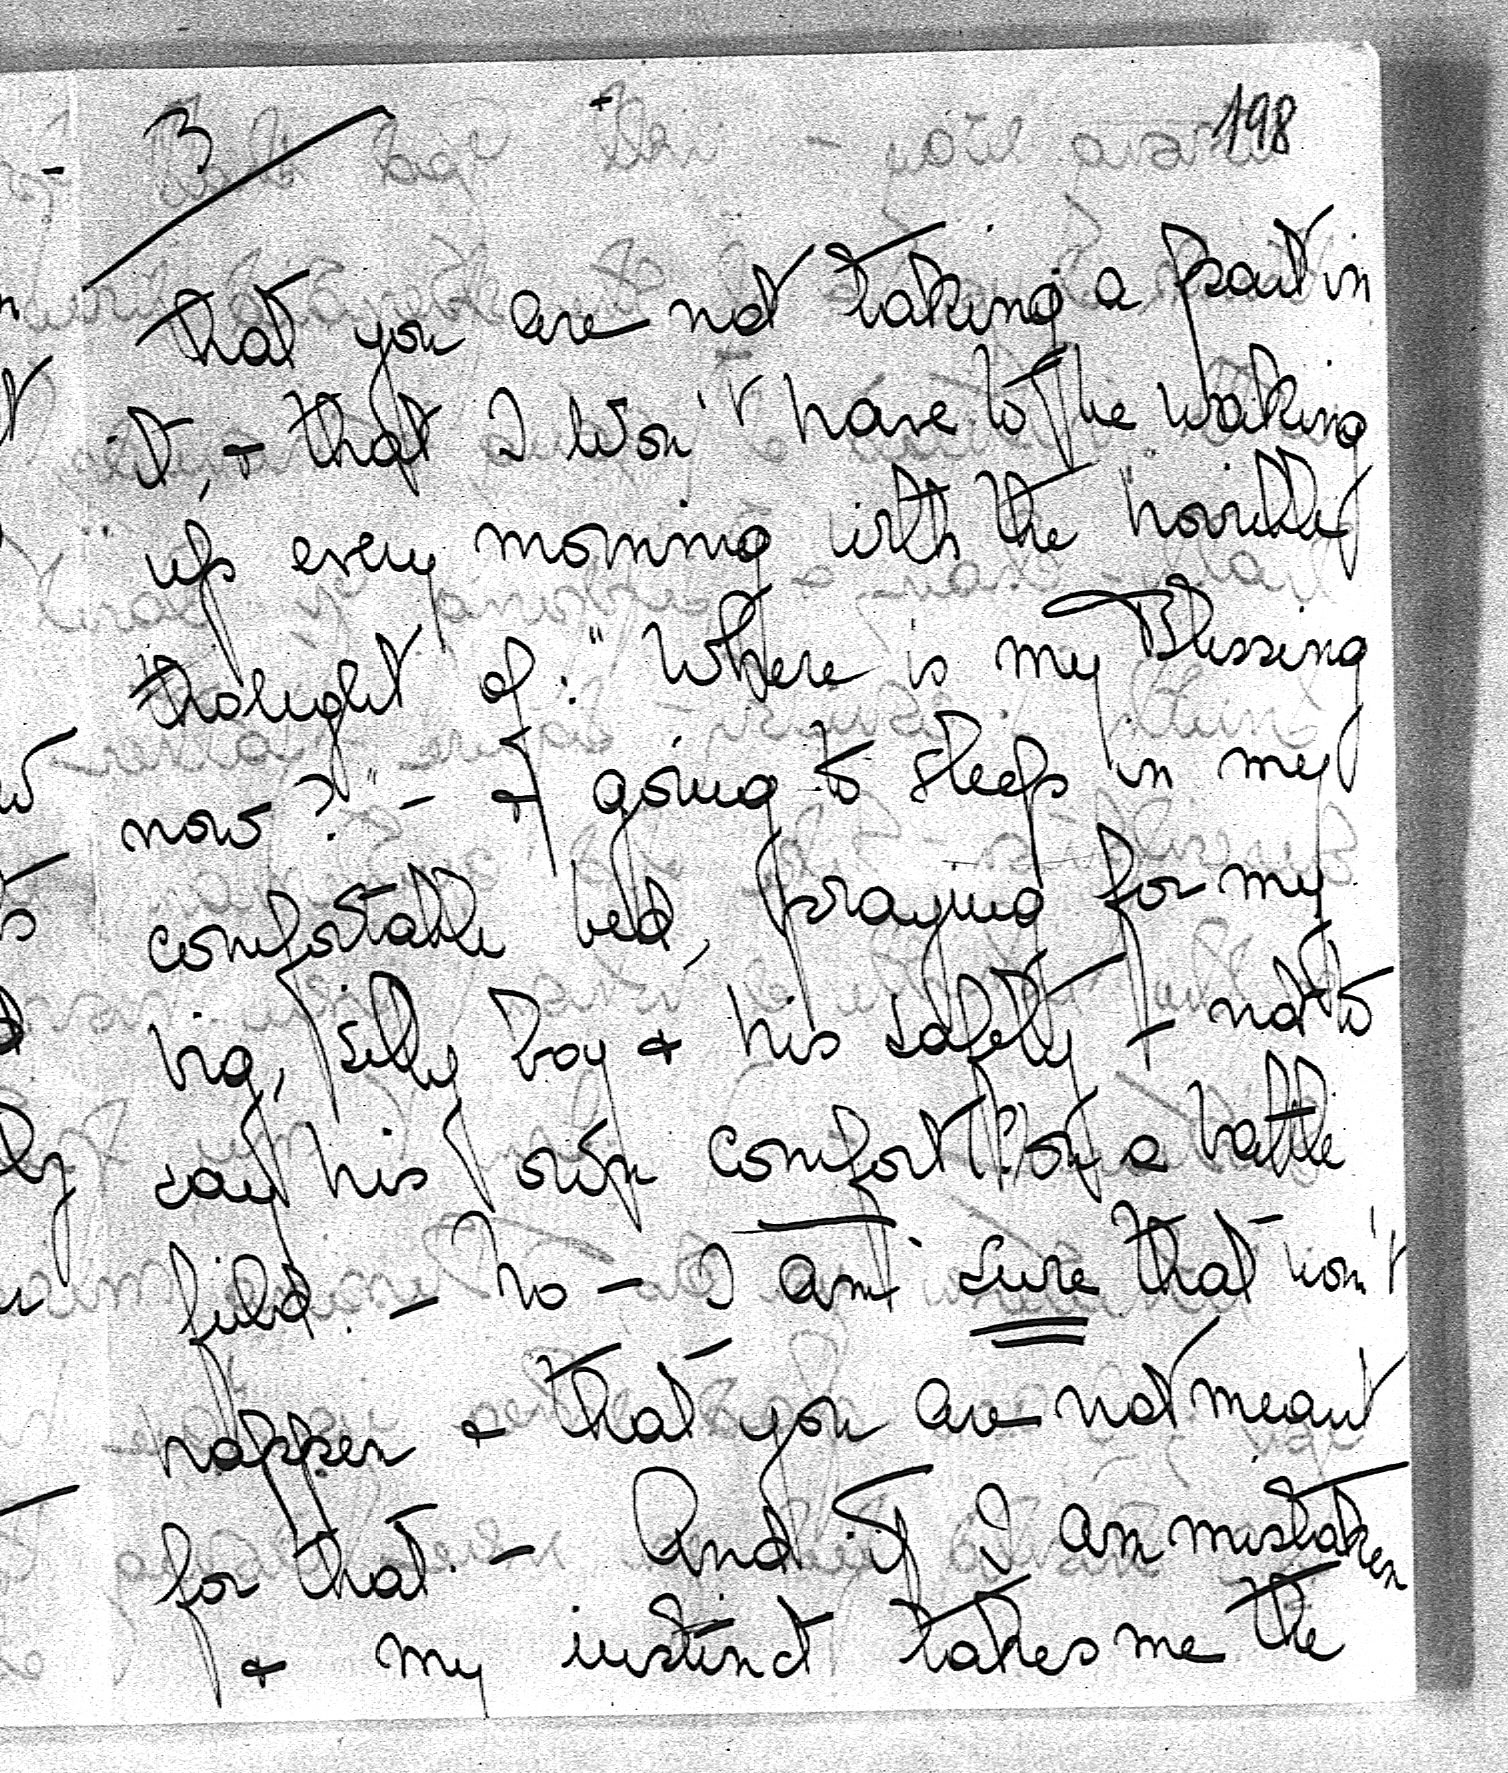 3
198
that you are not taking a part in
it, + that I won't have to be waking
up every morning with the "horrible"
thought of: "Where is my Blessing
now?" - + going to sleep in my
comfortable bed, praying for my
big, silly Boy + his safety - not to
say his own comfort (!) on a battle
field. - No - I am sure that won't
happen + that you are not meant
for that. - And if I am mistaken
+ my instinct takes me the